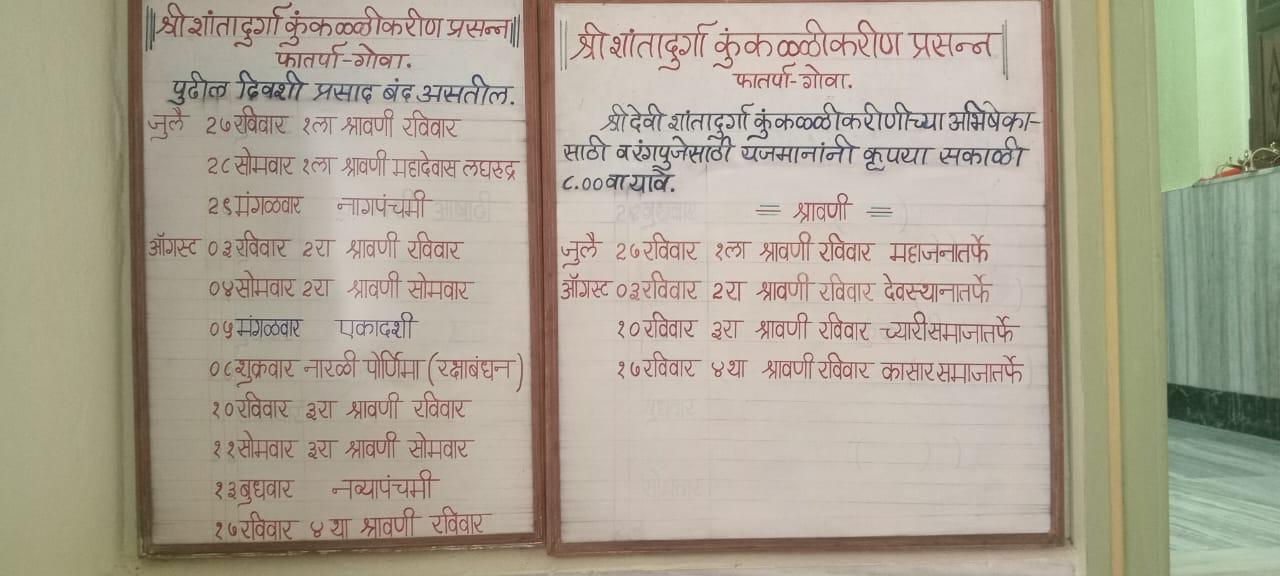 ॥श्री शांतादुर्गा कुंकळ्ळीकरीण प्रसन्न॥
फातर्पा-गोवा.
पुढील दिवशी प्रसाद बंद असतील.
जुलै २७ रविवार १ला श्रावणी रविवार
२८ सोमवार १ला श्रावणी महादेवास लघरुद्र
२९ मंगळवार नागपंचमी
ऑगस्ट ०३ रविवार २रा श्रावणी रविवार
०४ सोमवार २रा श्रावणी सोमवार
०५ मंगळवार एकादशी
०८ शुक्रवार नारळी पोर्णिमा (रक्षाबंधन)
१० रविवार ३रा श्रावणी रविवार
११ सोमवार ३रा श्रावणी सोमवार
१३ बुधवार नव्यापंचमी
१७ रविवार ४था श्रावणी रविवार
॥श्री शांतादुर्गा कुंकळ्ळीकरीण प्रसन्न॥
फातर्पा-गोवा.
श्री देवी शांतादुर्गा कुंकळ्ळीकरीणीच्या अभिषेका-
साठी व रंगपुजेसाठी यजमानांनी कृपया सकाळी
८.०० वा यावे.
= श्रावणी =
जुलै २७ रविवार १ला श्रावणी रविवार महाजनातर्फे
ऑगस्ट ०३ रविवार २रा श्रावणी रविवार देवस्थानातर्फे
१० रविवार ३रा श्रावणी रविवार च्यारी समाजातर्फे
१७ रविवार ४था श्रावणी रविवार कासार समाजातर्फे